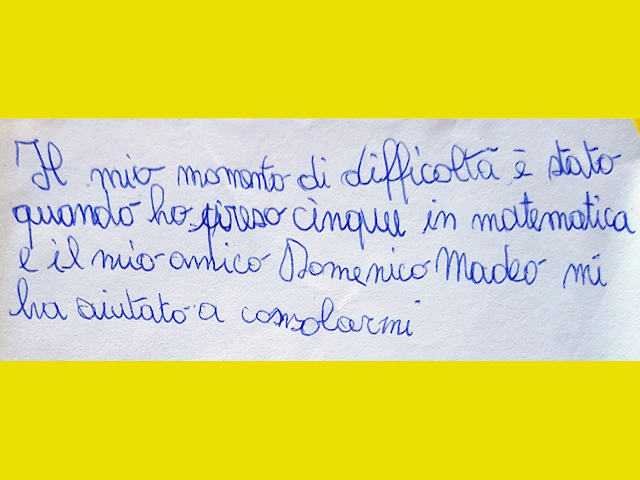 Il mio momento di difficoltà è stato
quando ho preso cinque in matematica
e il mio amico Domenico Madeo mi
ha aiutato a consolarmi